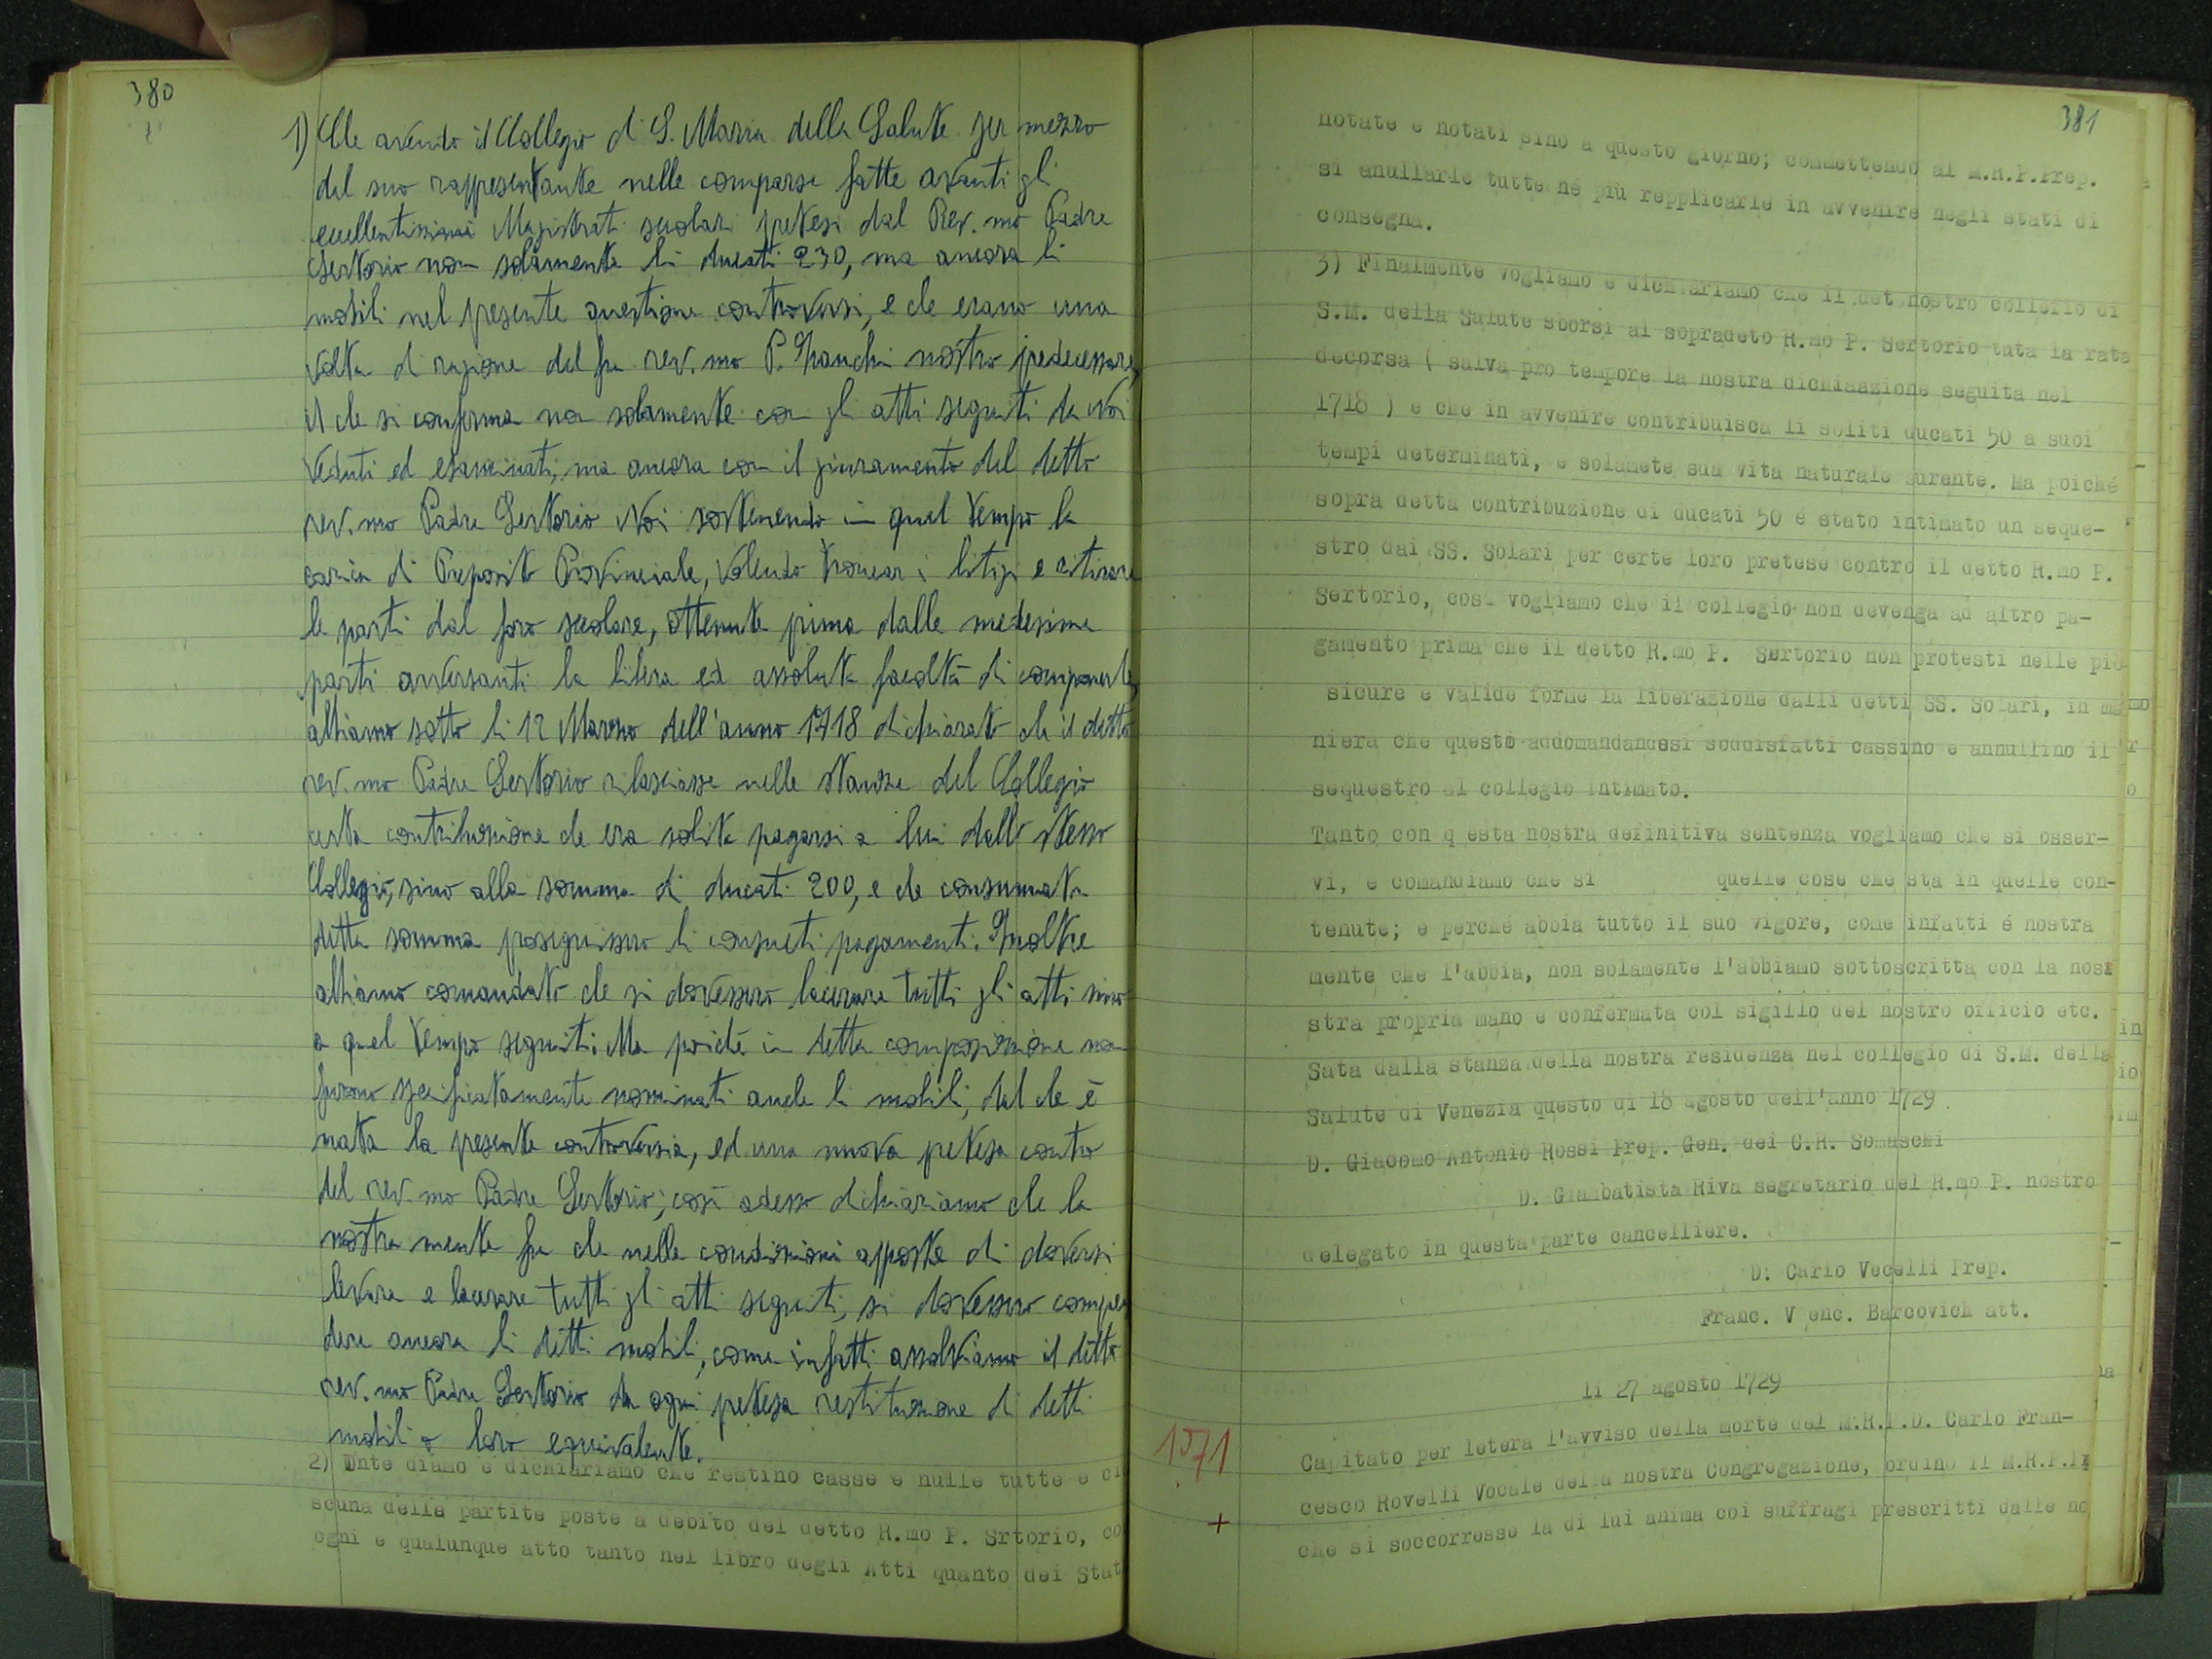 380
1) Che avendo il Collegio di S. Maria della Salute per mezzo
del suo rappresentante nelle comparse fatte avanti gli
eccellentissimi Magistrati secolari pretesi dal Rev.mo Padre
Sertorio non solamente li ducati 230, ma ancora li
mobili nel presente questione controversi, e che erano una
volta di ragione del fu rev.mo P. Zanchi nostro predecessore,
il che si conferma non solamente con gli atti seguiti da Noi
veduti ed esaminati, ma ancora con il giuramento del detto
rev.mo Padre Sertorio Noi sostenendo in quel tempo la
carica di Preposito Provinciale, volendo troncar i litigi e ritirare
le parti dal foro secolare, ottenuta prima dalle medesime
parti avversanti la libera ed assoluta facoltà di comporle,
abbiamo sotto li 12 Marzo dell'anno 1718 dichiarato che il detto
rev.mo Padre Sertorio rilasciasse nelle stanze del Collegio
certa contribuzione che era solita pagarsi a lui dallo stesso
Collegio, sino alla somma di ducati 200, e che consumata
detta somma proseguissero li consueti pagamenti. Inoltre
abbiamo comandato che si dovessero lacerare tutti gli atti sino
a quel tempo seguiti. Ma poiché in detta composizione non
furono specificatamente nominati anche li mobili, dal che è
nata la presente controversia, ed una nuova pretesa contro
del rev.mo Padre Sertorio; così adesso dichiariamo che la
nostra mente fu che nelle condizioni apposte di doversi
levare e lacerare tutti gli atti seguiti, si dovessero compren
dere ancora li detti mobili, come infatti assolviamo il detto
rev.mo Padre Sertorio da ogni pretesa restituzione di detti
mobili o loro equivalente.
2) Inte diamo e dichiariamo che restino casse e nulle tutte e ci
scuna delle partite poste a debito del detto R.mo P. Srtorio, co
ogni e qualunque atto tanto nel libro degli Atti quanto dei Stat
381
notate e notati sino a questo giorno; commettendo al M.R.P.Prep.
si anullarle tutte né più repplicarle in avvenire negli stati di
consegna.
3) Finalmente vogliamo e dichiariamo che il det nostro collefio di
S.M. della Salute sborsi al sopradeto R.mo P. Sertorio tuta la rata
decorsa ( salva pro tempore la nostra dichiaazione seguita nel
1718 ) e che in avvenire contribuisca li soliti ducati 50 a suoi
tempi determinati, e solamete sua vita naturale durante. Ma poiché
sopra detta contribuzione di ducati 50 é stato intimato un seque-
stro dai SS. Solari per certe loro pretese contro il detto R.mo P.
Sertorio, così vogliamo che il collegio non devenga ad altro pa-
gamento prima che il detto R.mo P. Sertorio non protesti nelle più
sicure e valide forme la liberazione dalli detti SS. Solari, in ma
niera che questo addomandandosi soddisfatti cassino e annullino il
sequestro al collegio intimato.
Tanto con q esta nostra definitiva sentenza vogliamo che si osser-
vi, e comandiamo che si quelle cose che sta in quelle con-
tenute; e perché abbia tutto il suo vigore, come infatti é nostra
mente che l'abbia, non solamente l'abbiamo sottoscritta con la nos
stra propria mano e confermata col sigillo del nostro officio etc.
Sata dalla stanza della nostra residenza nel collegio di S.M. della
Salute di Venezia questo di 18 agosto dell'anno 1729
D. Giacomo Antonio Rossi Prep. Gen. dei C.R. Somaschi
D. Giambatista Riva segretario del R.mo P. nostro
delegato in questa parte cancelliere.
D: Carlo Vecelli Prep.
Franc. V enc. Barcovich att.
li 27 agosto 1729
1571
Capitato per letera l'avviso della morte del M.R.P.D. Carlo Fran-
cesco Rovelli Vocale della nostra Congregazione, ordinò il M.R.P.
+
che si soccorresse la di lui anima coi suffragi prescritti dalle no